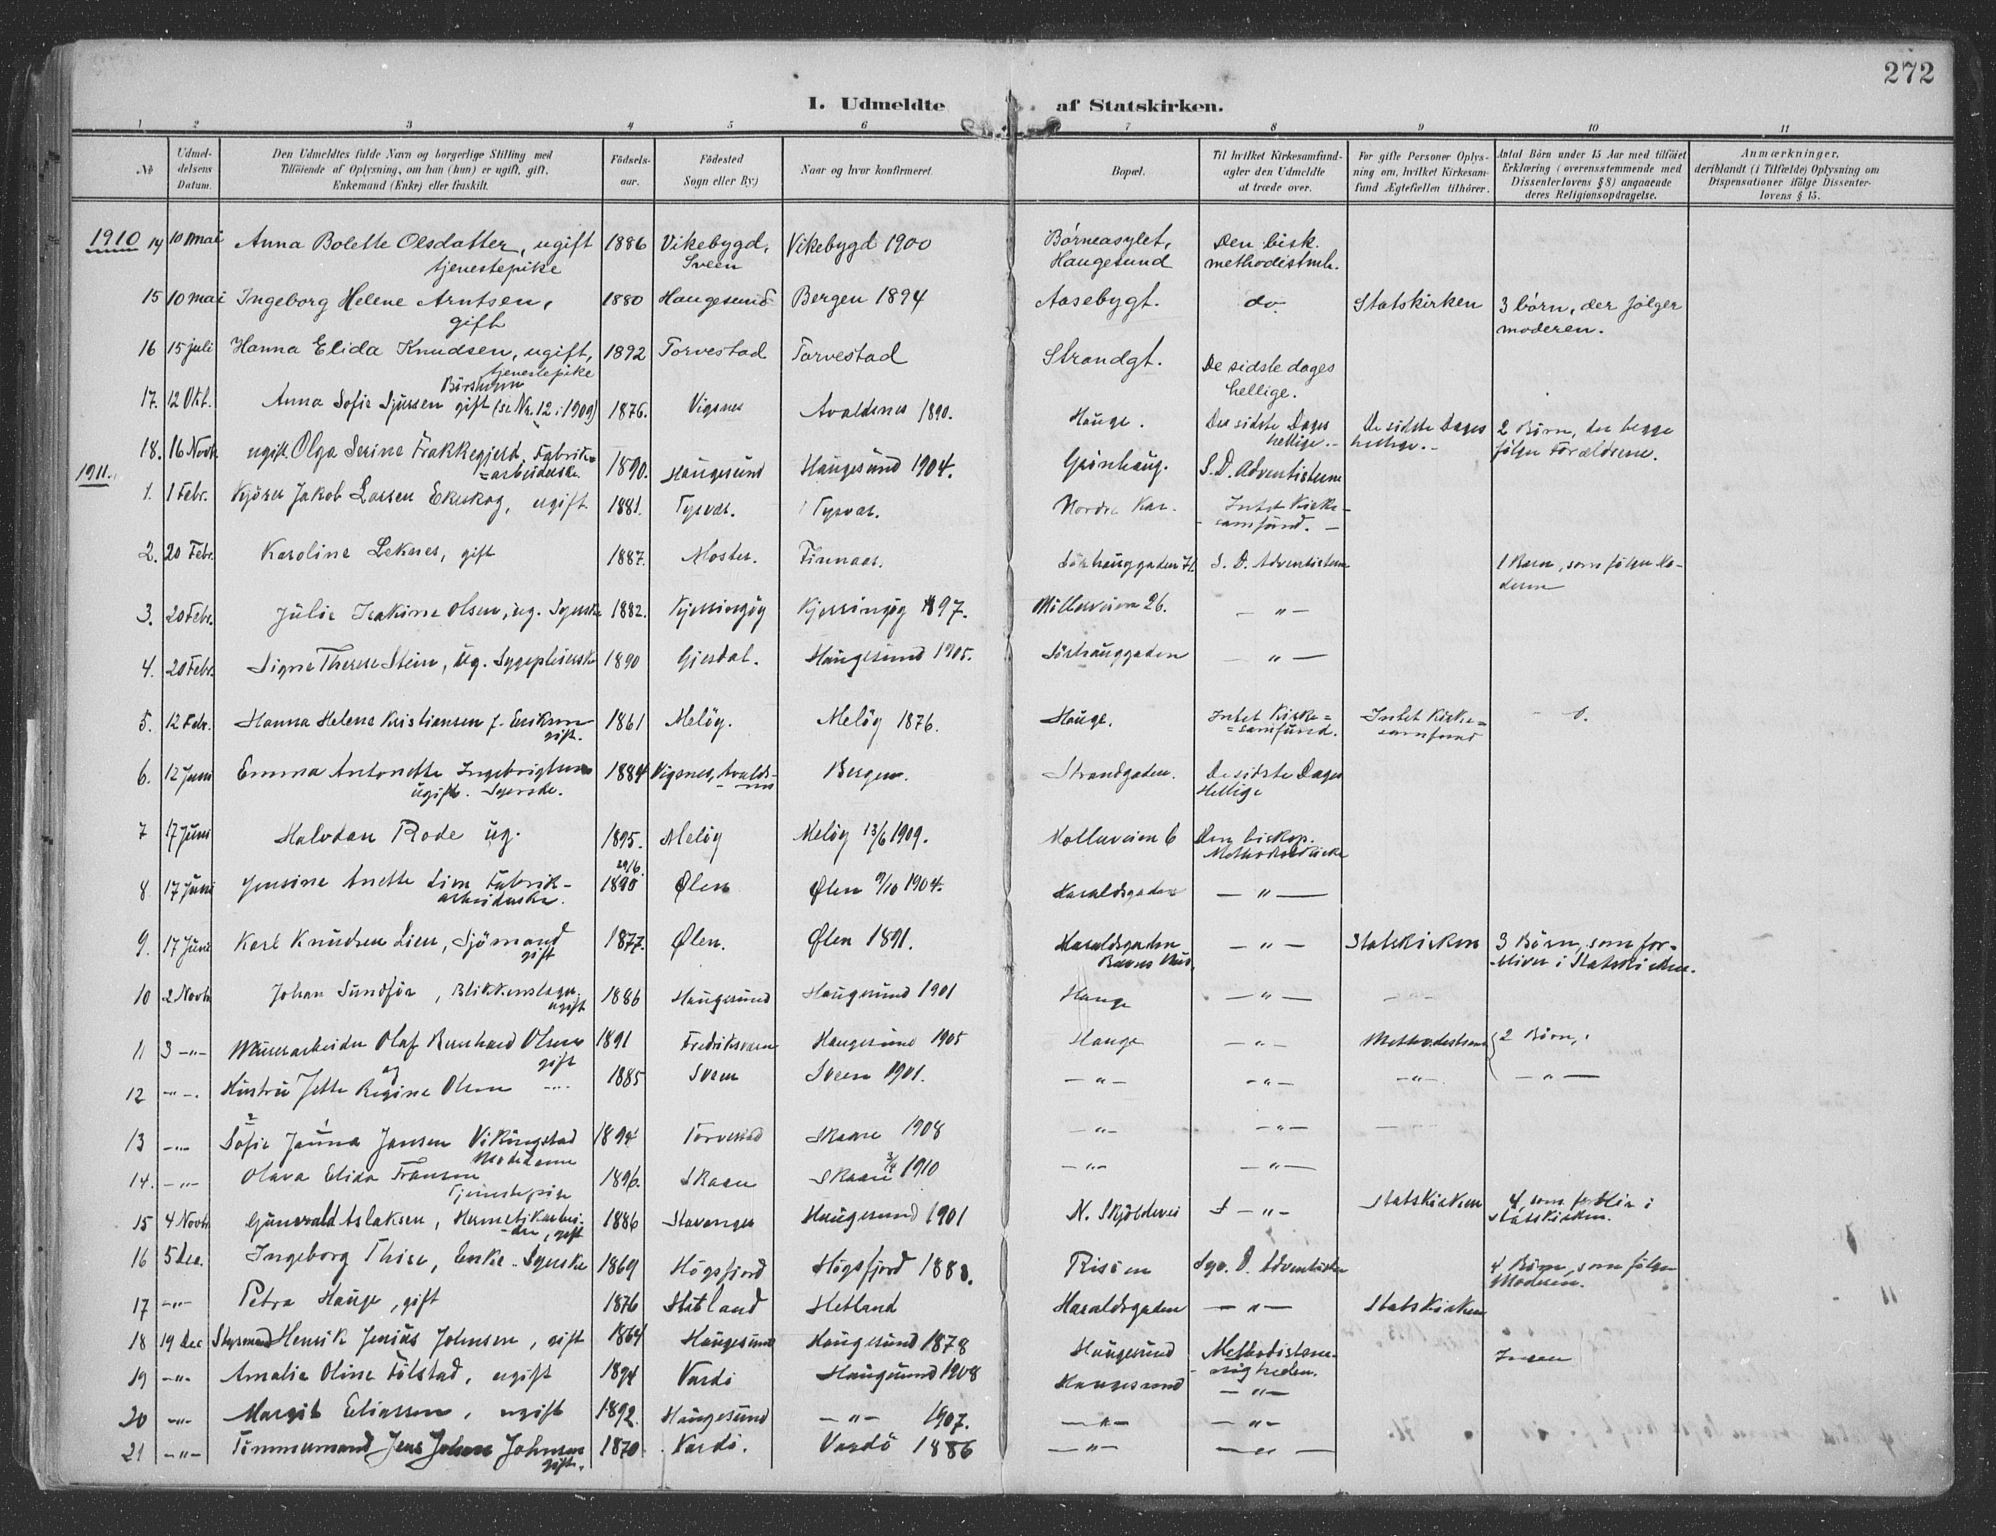 272
I. Udmeldte af Statskirken.
1 2 3 4 5 6 7 8 9 10 11
No
Udmeldelsens Datum.
Den Udmeldtes fulde Navn og borgerlige Stilling med
Tilføiende af Oplysning, om han (hun) er ugift, gift,
Enkemand (Enke) eller fraskilt.
Fødselsaar.
Fødested
Sogn eller By)
Naar og hvor konfirmeret.
Bopæl.
Til hvilket Kirkesamfund
agter den Udmeldte
at træde over.
For gifte Personer Oplysning om, hvilket Kirkesamfund Ægtefællen tilhører.
Antal Børn under 15 Aar med tilføiet
Erklæring (overensstemmende med
Dissenterlovens § 8) angaaende
deres Religionsopdragelse.
Anmærkninger,
deriblandt (i Tilfælde) Oplysning om
Dispensationer ifølge Dissenterlovens § 15.
1910
14 10 mai Anna Bolette Olsdatter, ugift 1886 Vikebygd, Vikebygd 1900 Børneasylet, Den bisk.
tjenestepike Sveen Haugesund methodistmh.
15 10 mai Ingeborg Helene Arntsen, 1880 Haugesund Bergen 1894 Aasebygt. do Statskirken 3 børn, der følger
gift moderen.
16 15 juli Hanna Elida Knudsen, ugift, 1892 Torvestad Torvestad Strandgt. De sidste dages
tjenestepike hellige.
17. 12 Okt. Anna Sofie Sjursen gift (se Nr. 12 i 1909) 1876. Vigsnes Avaldsnes 1890. Hauge. De sidste Dages De sidste Dages 2 Børn, der begge
hellige. hellige. følger Forældrene.
18. 16 Novb. ugift Olga Serine Frakkagjerd, Fabrik- 1890. Haugesund Haugesund 1904. Grønhaug. S. D. Adventisterne
arbeiderske.
1911.
1. 1 Febr. Jakob Larsen Ekeskog, ugift 1881. Tysvær. Tysvær. Nordre Intet Kirke-
samfund.
2. 20 Febr. Karoline Leknes, gift 1887. Moster. Finnaas. Sørhauggaden 71 S. D. Adventisterne 1 Barn, som følger Mo-
deren
3. 20 Febr. Julie Olsen, ug. Syerske 1882. Kjerringøy Kjerringøy 1897. Møllerveien 26. — " —
4. 20 Febr. Signe Therese Stein, ug. Sygepleierske 1890 Gjesdal. Haugesund 1905. Sørhauggaden — " —
5. 12 Febr. Hanna Helene Kristiansen f. Eriksen 1861 Meløy. Meløy 1876. Hauge. Intet Kirke= Intet Kirke= — 0.
gift. =samfund. samfund
6. 12 Juni Emma Antonette Ingebrigtsen 1884 Vigsnes, Avalds- Bergen. Strandgaden. De sidste Dages
ugift. Syerske. nes Hellige
7 17 Juni Halvdan Rode ug. 1895. Meløy Meløy 13/6 1909. Møllerveien 6 Den biskop.
Methodistkirke
8 17 Juni Jensine Anette Lien Fabrik- 29/6. 1890 Ølen Ølen 9/10 1904. Haraldsgaden — " —
arbeiderske.
9. 17 Juni Karl Knudsen Lien, Sjømand 1877. Ølen. Ølen 1891. Haraldsgaden — " — Statskirken 3 Børn, som for-
gift bliver i Statskirken.
10 2 Novbr Johan Sundfør, Blikkenslager. 1886 Haugesund Haugesund 1901 Hauge — " —
ugift
11 3 —"— Murerarbeider Olaf Bernhard Olsen 1891 Fredriksværn Haugesund 1905 Hauge — " — Methodistene 2 Børn,
og gift
12 —"—. Hustru Jette Regine Olsen —"— 1885 Sveen Sveen 1901. — " — — " — — " — — " —
13 —"— Sofie Janna Jansen Vikingstad 1894 Torvestad Skaare 1908 — " — — " —
14. —"— Olava Elida Fransen 1896. Skaare Skaare 1910 — " — — " —
Tjenestepike
15 4 Novbr Gunvald Aslaksen, Hermetikarbei- 1886 Stavanger Haugesund 1901 N. Skjoldevei — " — Statskirken 4 som forblir i
der, gift Statskirken.
16 5 Dec. Ingeborg Thise, Enke. Syerske 1869 Høgsfjord Høgsfjord 1883. Risøen Syv. D. Adventister 4 Børn, som følger
Moderen.
17 —"— Petra Hauge, gift 1876 Hetland Hetland Haraldsgaden — " — Statskirken
18 19 Dec Styrmand Henrik Jenius Johnsen, gift 1864 Haugesund Haugesund 1878 Haugesund Methodistme- Ingen
nigheden.
19 —"— Amalie Oline Følstad, ugift 1894 Vardø Haugesund 1908 Haugesund — " —
20 —"— Margit Eliassen, ugift 1892. Haugesund — " — 1907. — " — — " —
21 —"— Tømmermand Jens Johan Johnsen 1870. Vardø. Vardø 1886 — " — — " —
gift.